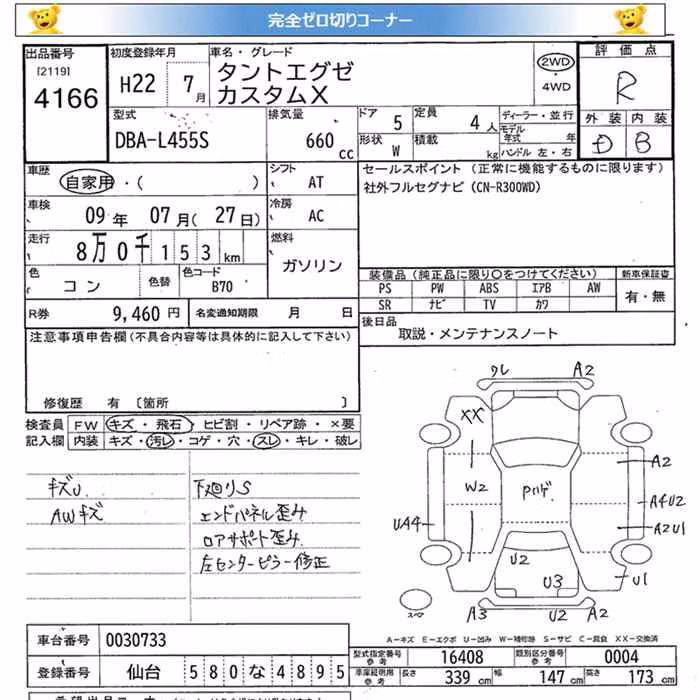 完全ゼロ切りコーナー
出品番号 初度登録年月 車名・グレード 評価点
[2119]
4166 H22 7月 タントエグゼ カスタムX 2WD 4WD R
型式 排気量 ドア 定員 ディーラー・並行 外装 内装
DBA-L455S 660cc 5 4人 モデル年式 年 D B
形状 W 積載 kg ハンドル 左・右
車歴 自家用・( ) シフト AT セールスポイント (正常に機能するものに限ります)
社外フルセグナビ(CN-R300WD)
車検 09年 07月(27日) 冷房 AC
走行 8万0千153km 燃料 ガソリン
色 コン 色替 色コード B70
装備品(純正品に限り〇をつけてください) 新車保証書
PS PW ABS エアB AW 有・無
SR ナビ TV カワ
R券 9,460円 名変通知期限 月 日
後日品 取説・メンテナンスノート
注意事項申告欄(不具合内容等は具体的に記入して下さい)
修復歴 有 〔箇所 〕
検査員記入欄 FW キズ・飛石・ヒビ割・リペア跡・×要
内装 キズ・汚レ・コゲ・穴・スレ・キレ・破レ
キズU 下廻りS
AWキズ エンドパネル歪み
ロアサポート歪み
左センターピラー修正
クレ A2
XX
A2
W2 Pハゲ A4U2
UA4 A2U1
U2
U3 U1
A3 U2 A2
A-キズ E-エクボ U-凹み W-補修跡 S-サビ C-腐食 XX-交換済
車台番号 0030733
登録番号 仙台 580な4895
型式指定番号 参考 16408 類別区分番号 参考 0004
車庫証明用 参考 長さ 339cm 幅 147cm 高さ 173cm